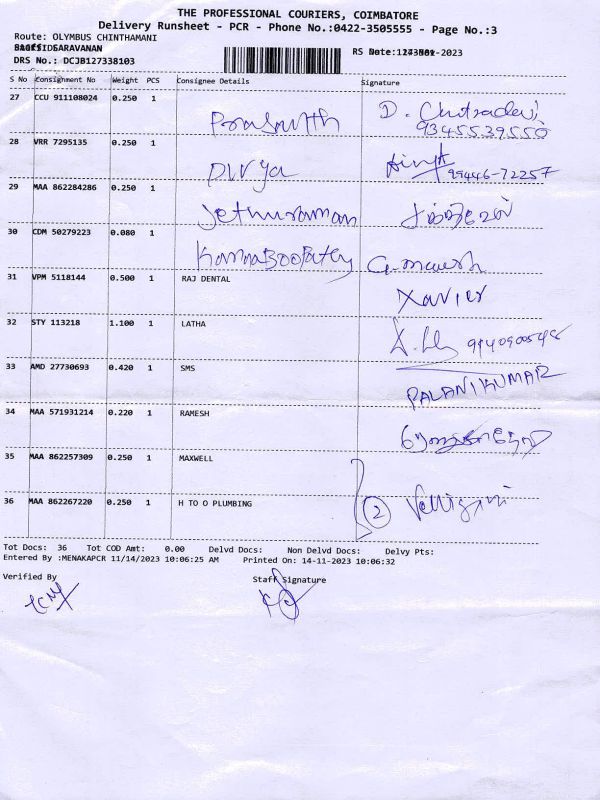 THE PROFESSIONAL COURIERS, COIMBATORE
Delivery Runsheet - PCR - Phone No.:0422-3505555 - Page No.:3
Route: OLYMBUS CHINTHAMANI
SARAVANAN
DRS No.: DCJB127338103
S No Consignment No Weight PCS Consignee Details Signature
27 CCU 911108024 0.250 1 Prashanth D. Chitradevi
9345539550
28 VRR 7295135 0.250 1 Divya 99446-72257
29 MAA 862284286 0.250 1 Jethuraman சக்திவேல்
30 CDM 50279223 0.080 1 KannaBoopathy G. mauresh
31 VPM 5118144 0.500 1 RAJ DENTAL Xavier
32 STY 113218 1.100 1 LATHA
33 AMD 27730693 0.420 1 SMS PALANIKUMAR
34 MAA 571931214 0.220 1 RAMESH
35 MAA 862257309 0.250 1 MAXWELL
36 MAA 862267220 0.250 1 H TO O PLUMBING 2
Tot Docs: 36 Tot COD Amt: 0.00 Delvd Docs: Non Delvd Docs: Delvy Pts:
Entered By :MENAKAPCR 11/14/2023 10:06:25 AM Printed On: 14-11-2023 10:06:32
Verified By Staff Signature